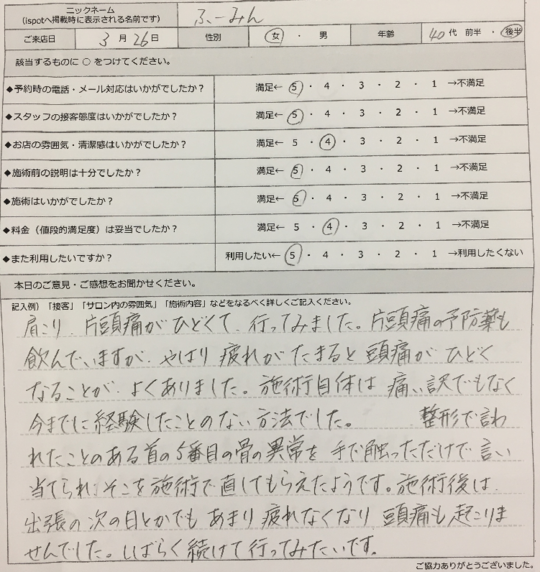 ニックネーム
(ispotへ掲載時に表示される名前です) ふーみん
ご来店日 3月26日 性別 女・男 年齢 40代 前半・後半
該当するものに○をつけてください。
◆予約時の電話・メール対応はいかがでしたか? 満足← 5・4・3・2・1 →不満足
◆スタッフの接客態度はいかがでしたか? 満足← 5・4・3・2・1 →不満足
◆お店の雰囲気・清潔感はいかがでしたか? 満足← 5・4・3・2・1 →不満足
◆施術前の説明は十分でしたか? 満足← 5・4・3・2・1 →不満足
◆施術はいかがでしたか? 満足← 5・4・3・2・1 →不満足
◆料金(値段的満足度)は妥当でしたか? 満足← 5・4・3・2・1 →不満足
◆また利用したいですか? 利用したい← 5・4・3・2・1 →利用したくない
本日のご意見・ご感想をお聞かせください。
記入例)「接客」「サロン内の雰囲気」「施術内容」などをなるべく詳しくご記入ください。
肩こり、片頭痛がひどくて、行ってみました。片頭痛の予防薬も
飲んでいますが、やはり疲れがたまると頭痛がひどく
なることが、よくありました。施術自体は痛い訳でもなく
今までに経験したことのない方法でした。 整形で言わ
れたことのある首の5番目の骨の異常を手で触っただけで言い
当てられ、そこを施術で直してもらえたようです。施術後は、
出張の次の日とかでもあまり疲れなくなり、頭痛も起こりま
せんでした。しばらく続けて行ってみたいです。
ご協力ありがとうございました。